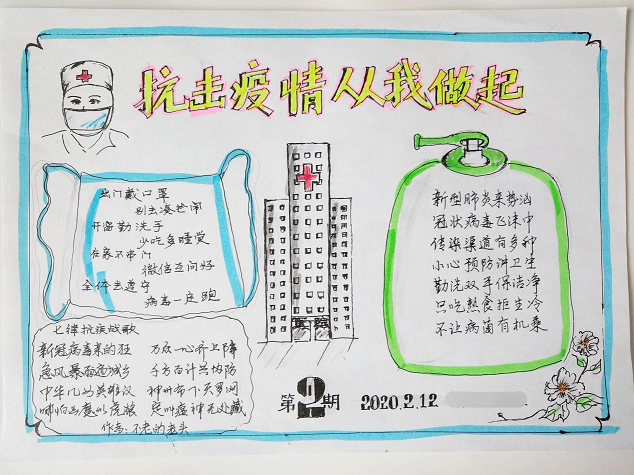 抗击疫情从我做起
出门戴口罩
别去凑热闹
开窗勤洗手
少吃多睡觉
在家不串门
微信互问好
全体去遵守
病毒一定跑
新型肺炎来势汹
冠状病毒飞沫中
传染渠道有多种
小心预防讲卫生
勤洗双手保洁净
只吃熟食拒生冷
不让病菌有机乘
医院
七律抗疾战歌
新冠病毒来的狂 万众一心齐上阵
急风暴雨 千方百计共力防
中华儿女英雄汉 神州布下天罗网
哪怕 定叫瘟神无处藏
作者:不老的老头
第2期 2020.2.12